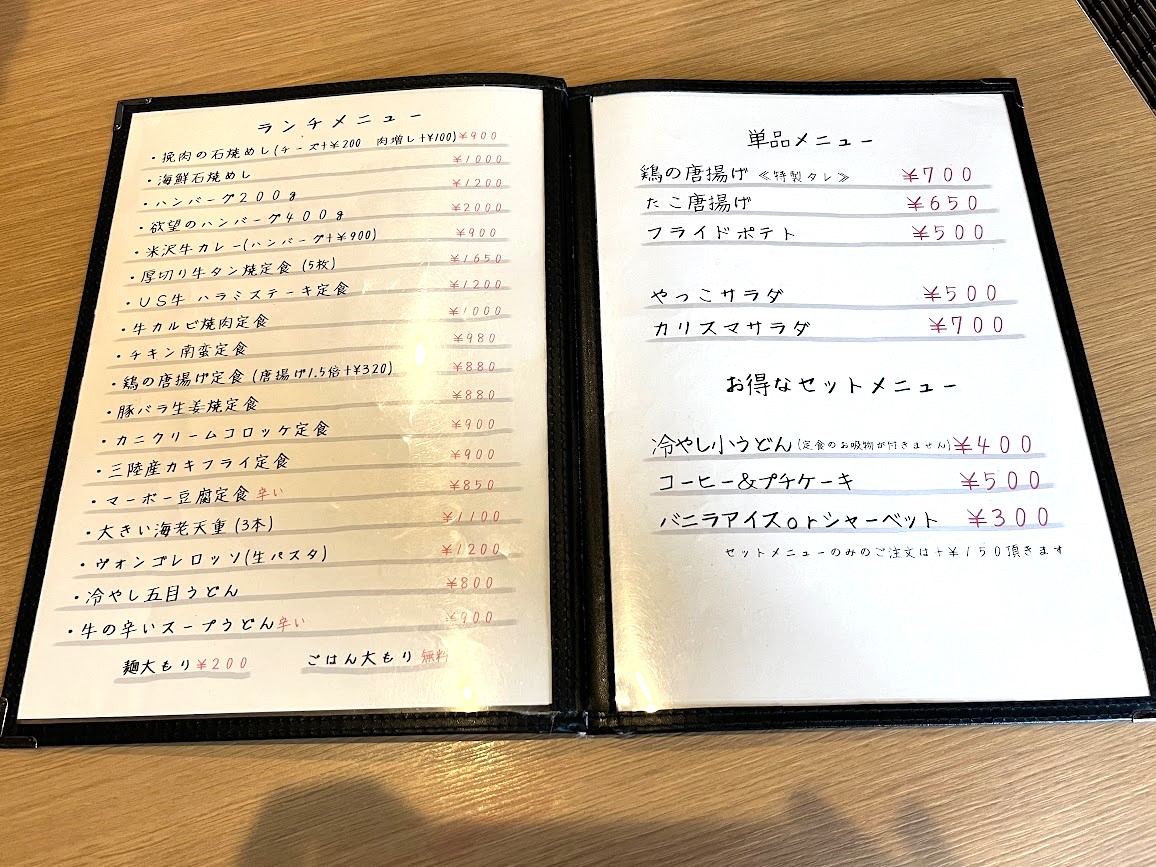 ランチメニュー
・挽肉の石焼めし(チーズ+¥200 肉増し+¥100) ¥900
・海鮮石焼めし ¥1000
・ハンバーグ200g ¥1200
・欲望のハンバーグ400g ¥2000
・米沢牛カレー(ハンバーグ+¥900) ¥900
・厚切り牛タン焼定食 (5枚) ¥1650
・US牛 ハラミステーキ定食 ¥1200
・牛カルビ焼肉定食 ¥1000
・チキン南蛮定食 ¥980
・鶏の唐揚げ定食 (唐揚げ1.5倍+¥320) ¥880
・豚バラ生姜焼定食 ¥880
・カニクリームコロッケ定食 ¥900
・三陸産カキフライ定食 ¥900
・マーボー豆腐定食 辛い ¥850
・大きい海老天重 (3本) ¥1100
・ヴォンゴレロッソ(生パスタ) ¥1200
・冷やし五目うどん ¥800
・牛の辛いスープうどん辛い ¥900
麺大もり¥200 ごはん大もり 無料
単品メニュー
鶏の唐揚げ ≪特製タレ≫ ¥700
たこ唐揚げ ¥650
フライドポテト ¥500
やっこサラダ ¥500
カリスマサラダ ¥700
お得なセットメニュー
冷やし小うどん(定食のお吸物が付きません)¥400
コーヒー&プチケーキ ¥500
バニラアイスorシャーベット ¥300
セットメニューのみのご注文は+¥150頂きます